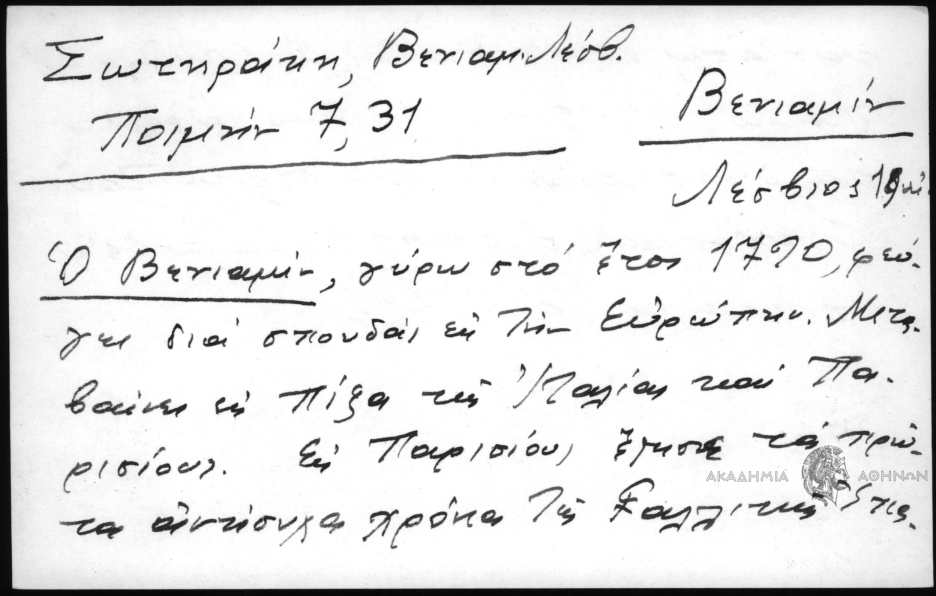 Σωτηράκη, Βενιαμ. Λέσβ.
Ποιμήν 7, 31
Βενιαμίν
Λέσβιος
Ὁ Βενιαμίν, γύρω στό ἔτος 1790, φεύ-
γει διά σπουδάς εἰς τήν Εὐρώπην. Μετα-
βαίνει εἰς Πίζα τῆς Ἰταλίας καί Πα-
ρισίους. Εἰς Παρισίους ἔζησε τά πρῶ-
τα ἀνήσυχα χρόνια τῆς Γαλλικῆς Ἐπα-
ΑΚΑΔΗΜΙΑ ΑΘΗΝΩΝ